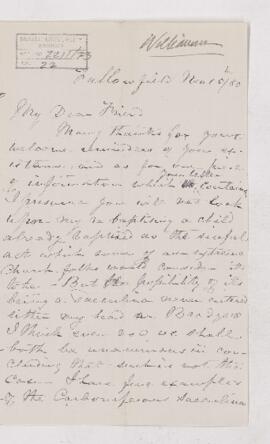 Williamson
22
Fallowfield Nov 15/80
My Dear Friend
Many thanks for your
welcome reminder of your ex-
istence, and as for your
of information which contains
I presume you will not look
upon my re baptising a child
already baptised as the sinful
act which some of our extreme
Church folks would consider it
to be. But the possibility of its
being a sacculina never entered
either my head or Bradys
I think even now we shall
both be unanimous in con-
cluding that such is not the
case. I have fine examples
of the Carboniferous Saccculina